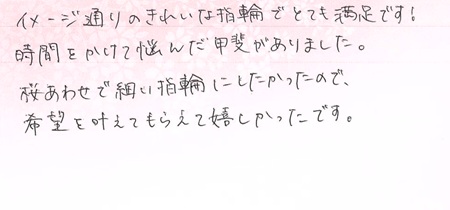 イメージ通りのきれいな指輪でとても満足です!
時間をかけて悩んだ甲斐がありました。
桜あわせで細い指輪にしたかったので、
希望を叶えてもらえて嬉しかったです。